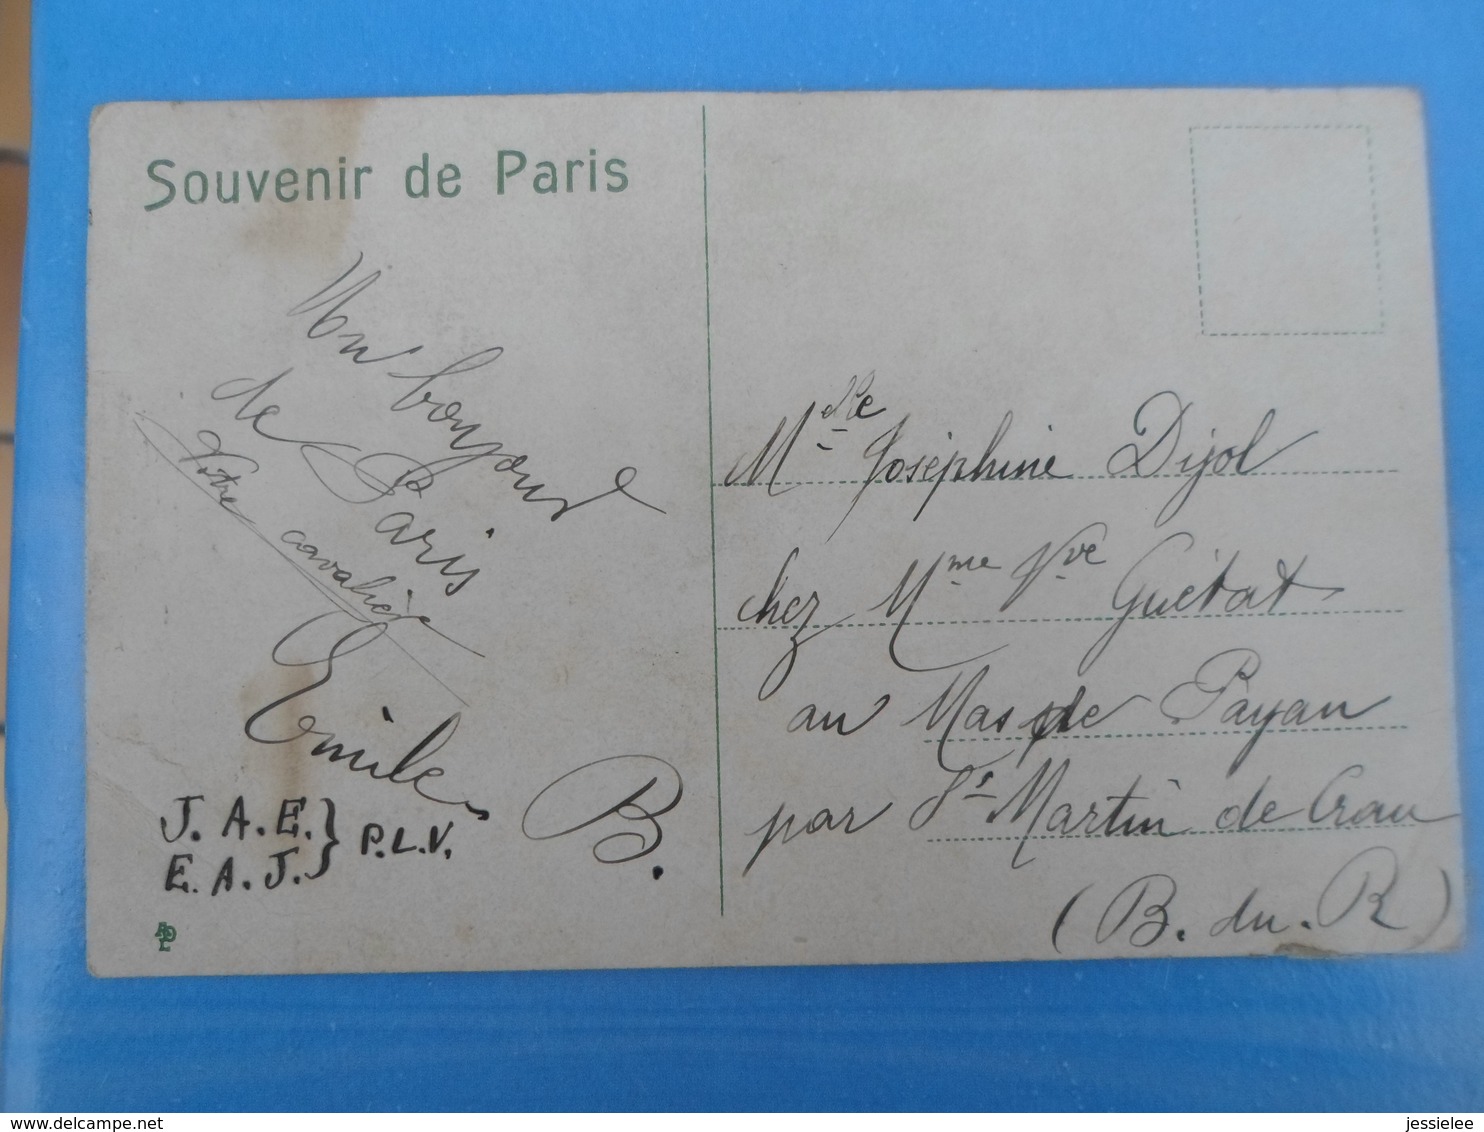 Souvenir de Paris
Un bonjour
de Paris
Votre cavalière
Emile
B.
J. A. E. } P.L.V.
E. A. J.
Mdelle Joséphine Dijol
chez Mme Vve Guétat
au Mas de Payan
par St Martin de Crau
(B. du. R)
jessielee